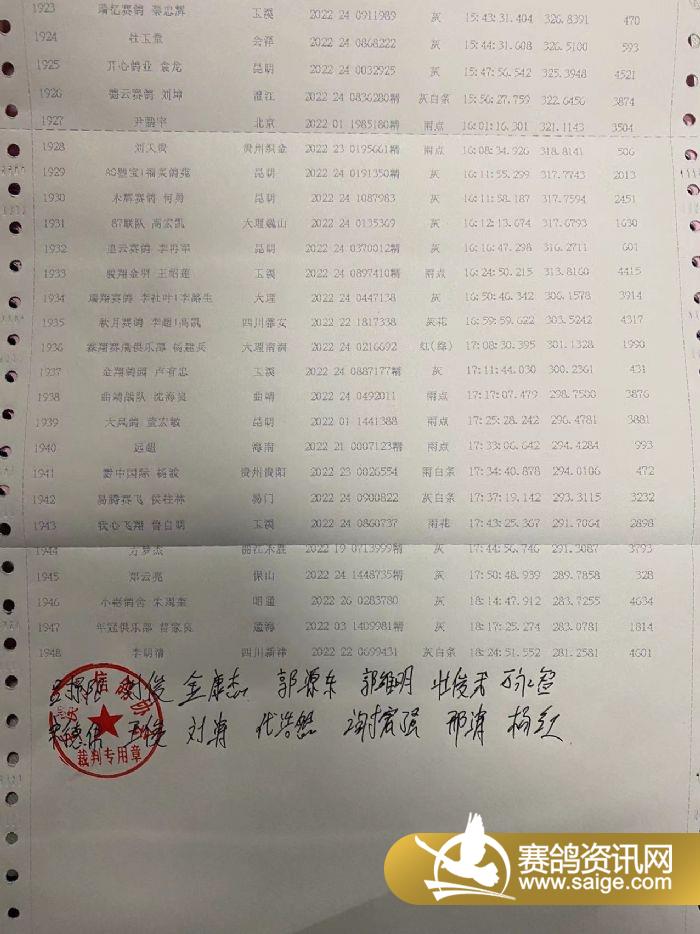 1923 瑞亿赛鸽 秦忠辉 玉溪 2022 24 0911989 灰 15:43:31.404 326.8391 470
1924 杜玉量 会泽 2022 24 0868222 灰 15:44:31.608 326.5100 593
1925 开心鸽业 袁龙 昆明 2022 24 0032925 灰 15:47:56.542 325.3948 4521
1926 德云赛鸽 刘坤 澄江 2022 24 0836280精 灰白条 15:56:27.759 322.6456 3874
1927 尹鹏宇 北京 2022 01 1985180精 雨点 16:01:16.301 321.1143 3504
1928 刘天贵 贵州织金 2022 23 0195661精 雨点 16:08:34.926 318.8141 506
1929 昆明 2022 24 0191350精 灰 16:11:55.299 317.7743 2013
1930 永辉赛鸽 何勇 昆明 2022 24 1087983 灰 16:11:58.187 317.7594 2451
1931 87联队 高宏凯 大理巍山 2022 24 0135369 灰 16:12:13.674 317.6793 1630
1932 星云赛鸽 李再军 昆明 2022 24 0370012精 灰 16:16:47.298 316.2711 601
1933 骏翔金羽 王绍莲 玉溪 2022 24 0897410精 雨点 16:24:50.215 313.8160 4415
1934 瑞翔赛鸽 大理 2022 24 0447138 灰 16:50:46.342 306.1578 3914
1935 秋月赛鸽 四川雅安 2022 22 1817338 灰花 16:59:59.622 303.5242 4317
1936 霖翔赛鸽俱乐部 杨建兵 大理南涧 2022 24 0216692 红(绛) 17:08:30.395 301.1328 1990
1937 金翔鹤园 卢有忠 玉溪 2022 24 0887177精 灰 17:11:44.030 300.2361 431
1938 曲靖战队 沈海良 曲靖 2022 24 0492011 雨点 17:17:07.479 298.7500 3876
1939 大风鸽 董宏敏 昆明 2022 01 1441388 雨点 17:25:28.242 296.4781 3881
1940 远超 海南 2022 21 0007123精 雨点 17:33:06.642 294.4284 993
1941 黔中国际 杨骏 贵州贵阳 2022 23 0026554 雨白条 17:34:40.878 294.0106 472
1942 易腾赛飞 侯桂林 易门 2022 24 0900822 灰白条 17:37:19.142 293.3115 3232
1943 我心飞翔 鲁自明 玉溪 2022 24 0860737 雨花 17:43:25.367 291.7064 2898
1944 方梦杰 丽江永胜 2022 19 0713999精 灰 17:44:56.746 291.3087 3793
1945 郑云亮 保山 2022 24 1448735精 灰 17:50:48.939 289.7858 328
1946 小彬鸽舍 朱周奎 昭通 2022 26 0283780 灰 18:14:47.912 283.7255 4634
1947 年冠俱乐部 曾家良 通海 2022 03 1409981精 灰 18:17:25.274 283.0781 1814
1948 李明清 四川新津 2022 22 0699431 灰白条 18:24:51.552 281.2581 4601
刘俊 金康杰 郭源东 郭维明 杜俊君
宋德伟 王俊 刘涛 代浩然 谢富强 邢涛 杨红
裁判专用章
赛鸽资讯网
www.saige.com